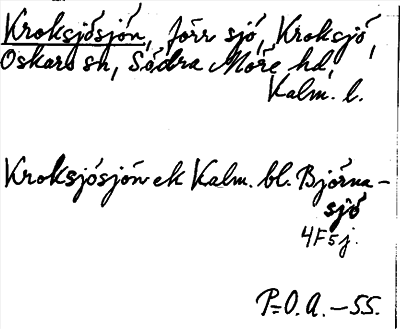 Kroksjösjön, förr sjö, Kroksjö,
Oskars sn, Södra Möre hd,
Kalm. l.
Kroksjösjön ek Kalm. bl. Björna-
sjö
4F5j.
P=O.A.-55.